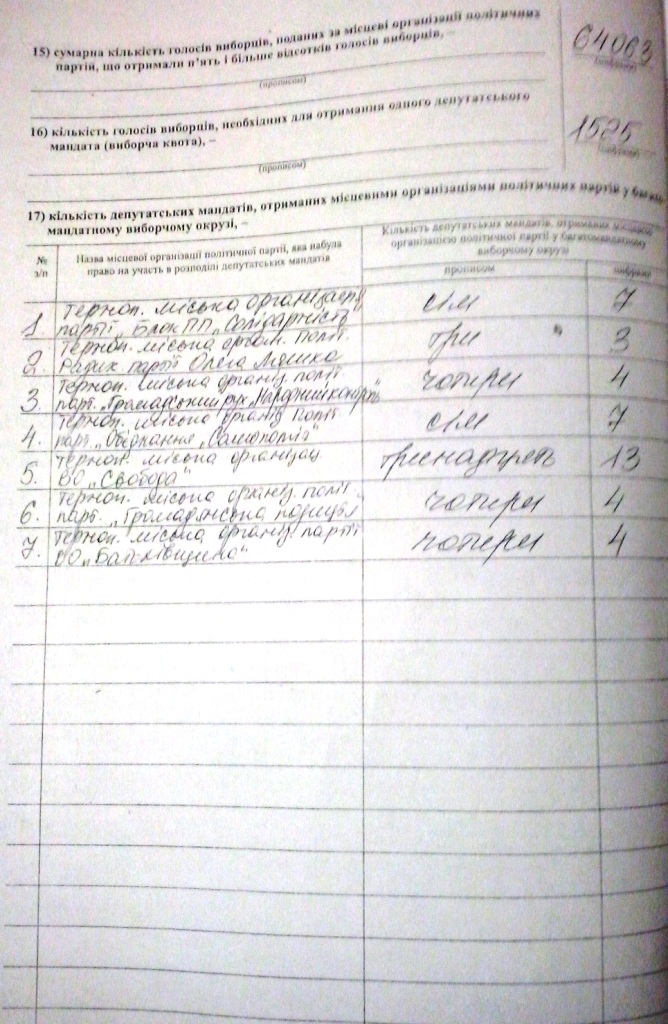 15) сумарна кількість голосів виборців, поданих за місцеві організації політичних
партій, що отримали п’ять і більше відсотків голосів виборців, –
64063
(цифрами)
(прописом)
16) кількість голосів виборців, необхідних для отримання одного депутатського
мандата (виборча квота), –
1525
(цифрами)
(прописом)
17) кількість депутатських мандатів, отриманих місцевими організаціями політичних партій у багато
мандатному виборчому окрузі, –
№
з/п
Назва місцевої організації політичної партії, яка набула
право на участь в розподілі депутатських мандатів
Кількість депутатських мандатів, отриманих місцевою
організацією політичної партії у багатомандатному
виборчому окрузі
прописом
цифрами
1.
Терноп. міська
партії „Блок ПП „Солідарність"
сім
7
2.
Терноп. міська орган. політ.
Радик. партії Олега Ляшка
три
3
3.
Терноп. міська організ. політ
парт. „Громадський рух „Народний контроль"
чотири
4
4.
Терноп. міська організ політ
парт „Обєднання „Самопоміч"
сім
7
5.
Терноп. міська організац.
ВО „Свобода"
тринадцять
13
6.
Терноп. міська організ. політ
парт. „Громадянська позиція"
чотири
4
7.
Терноп. міська організ. партії
ВО „Батьківщина"
чотири
4